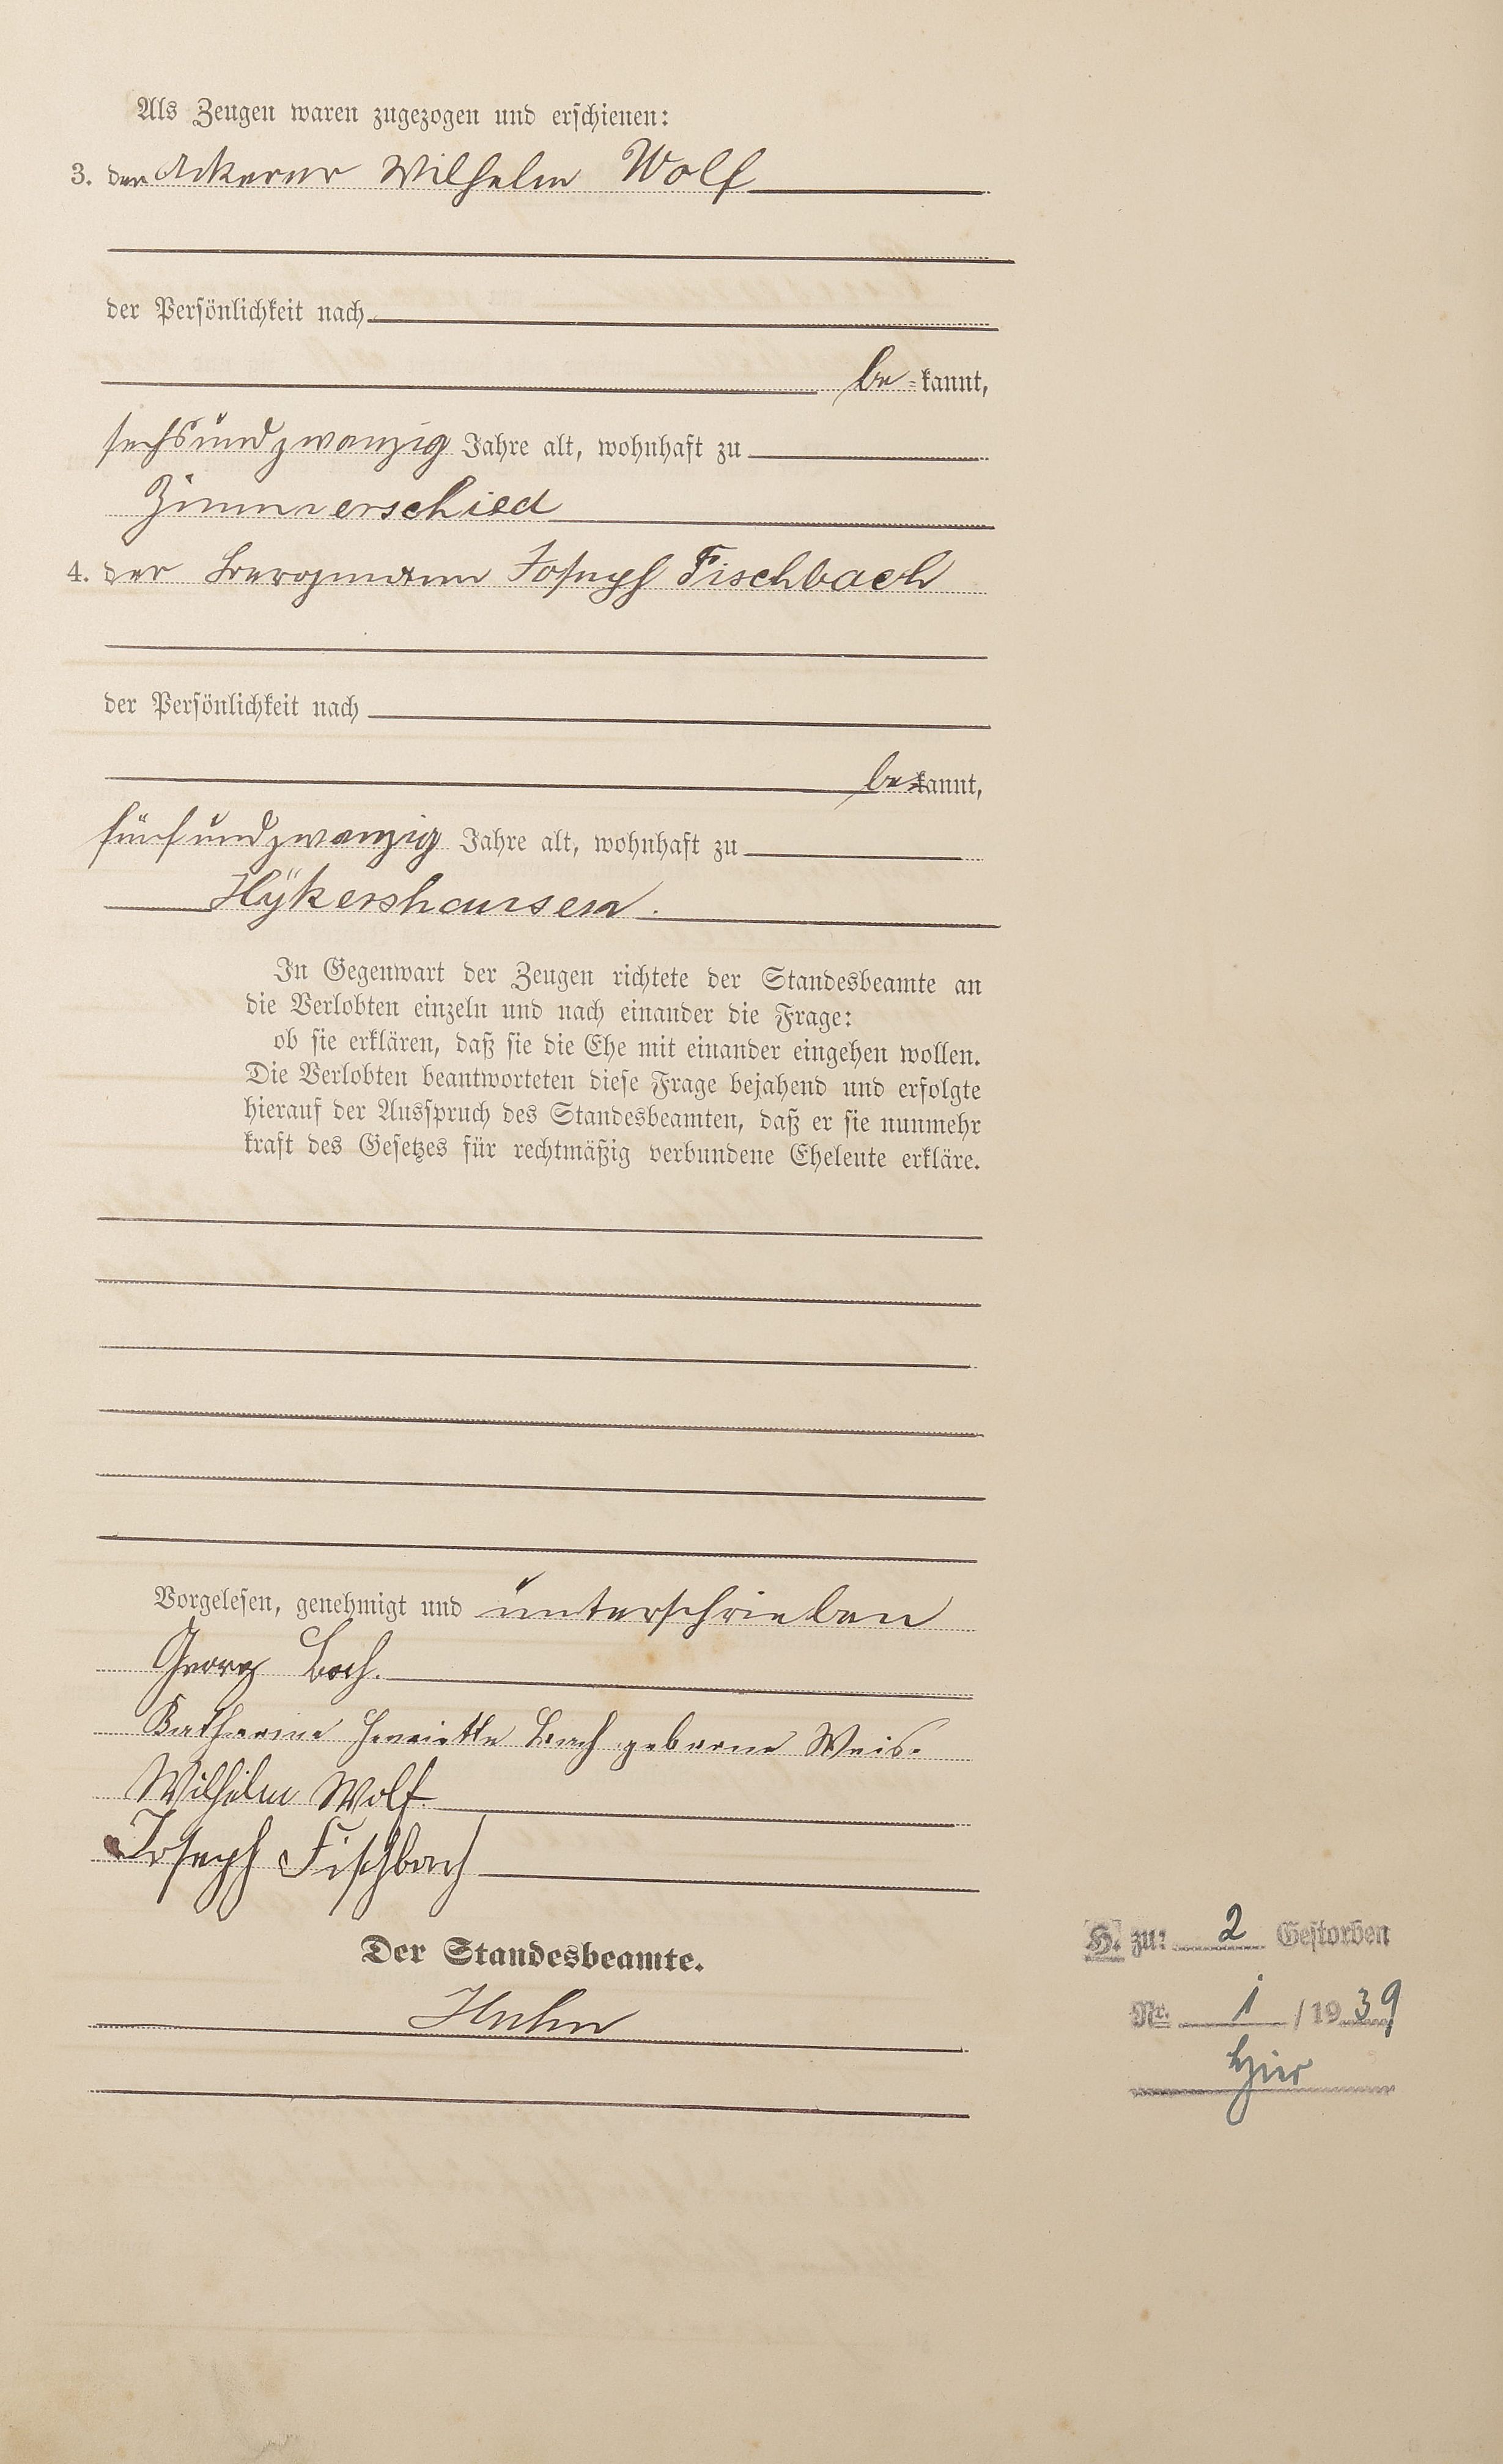 Als Zeugen waren zugezogen und erschienen:
3. der Ackerer Wilhelm Wolf
der Persönlichkeit nach
be=kannt,
sechsundzwanzig Jahre alt, wohnhaft zu
Zimmerschied
4. der Bergmann Joseph Fischbach
der Persönlichkeit nach
bekannt,
fünfundzwanzig Jahre alt, wohnhaft zu
Hÿkershausen.
In Gegenwart der Zeugen richtete der Standesbeamte an
die Verlobten einzeln und nach einander die Frage:
ob sie erklären, daß sie die Ehe mit einander eingehen wollen.
Die Verlobten beantworteten diese Frage bejahend und erfolgte
hierauf der Ausspruch des Standesbeamten, daß er sie nunmehr
kraft des Gesetzes für rechtmäßig verbundene Eheleute erkläre.
Vorgelesen, genehmigt und unterschrieben
Georg Bach.
Katharine Henriette Bach geborne Weis.
Wilhelm Wolf
Joseph Fischbach
Der Standesbeamte.
Huhn
H. zu: 2 Gestorben
Nr. 1 /1939
hier